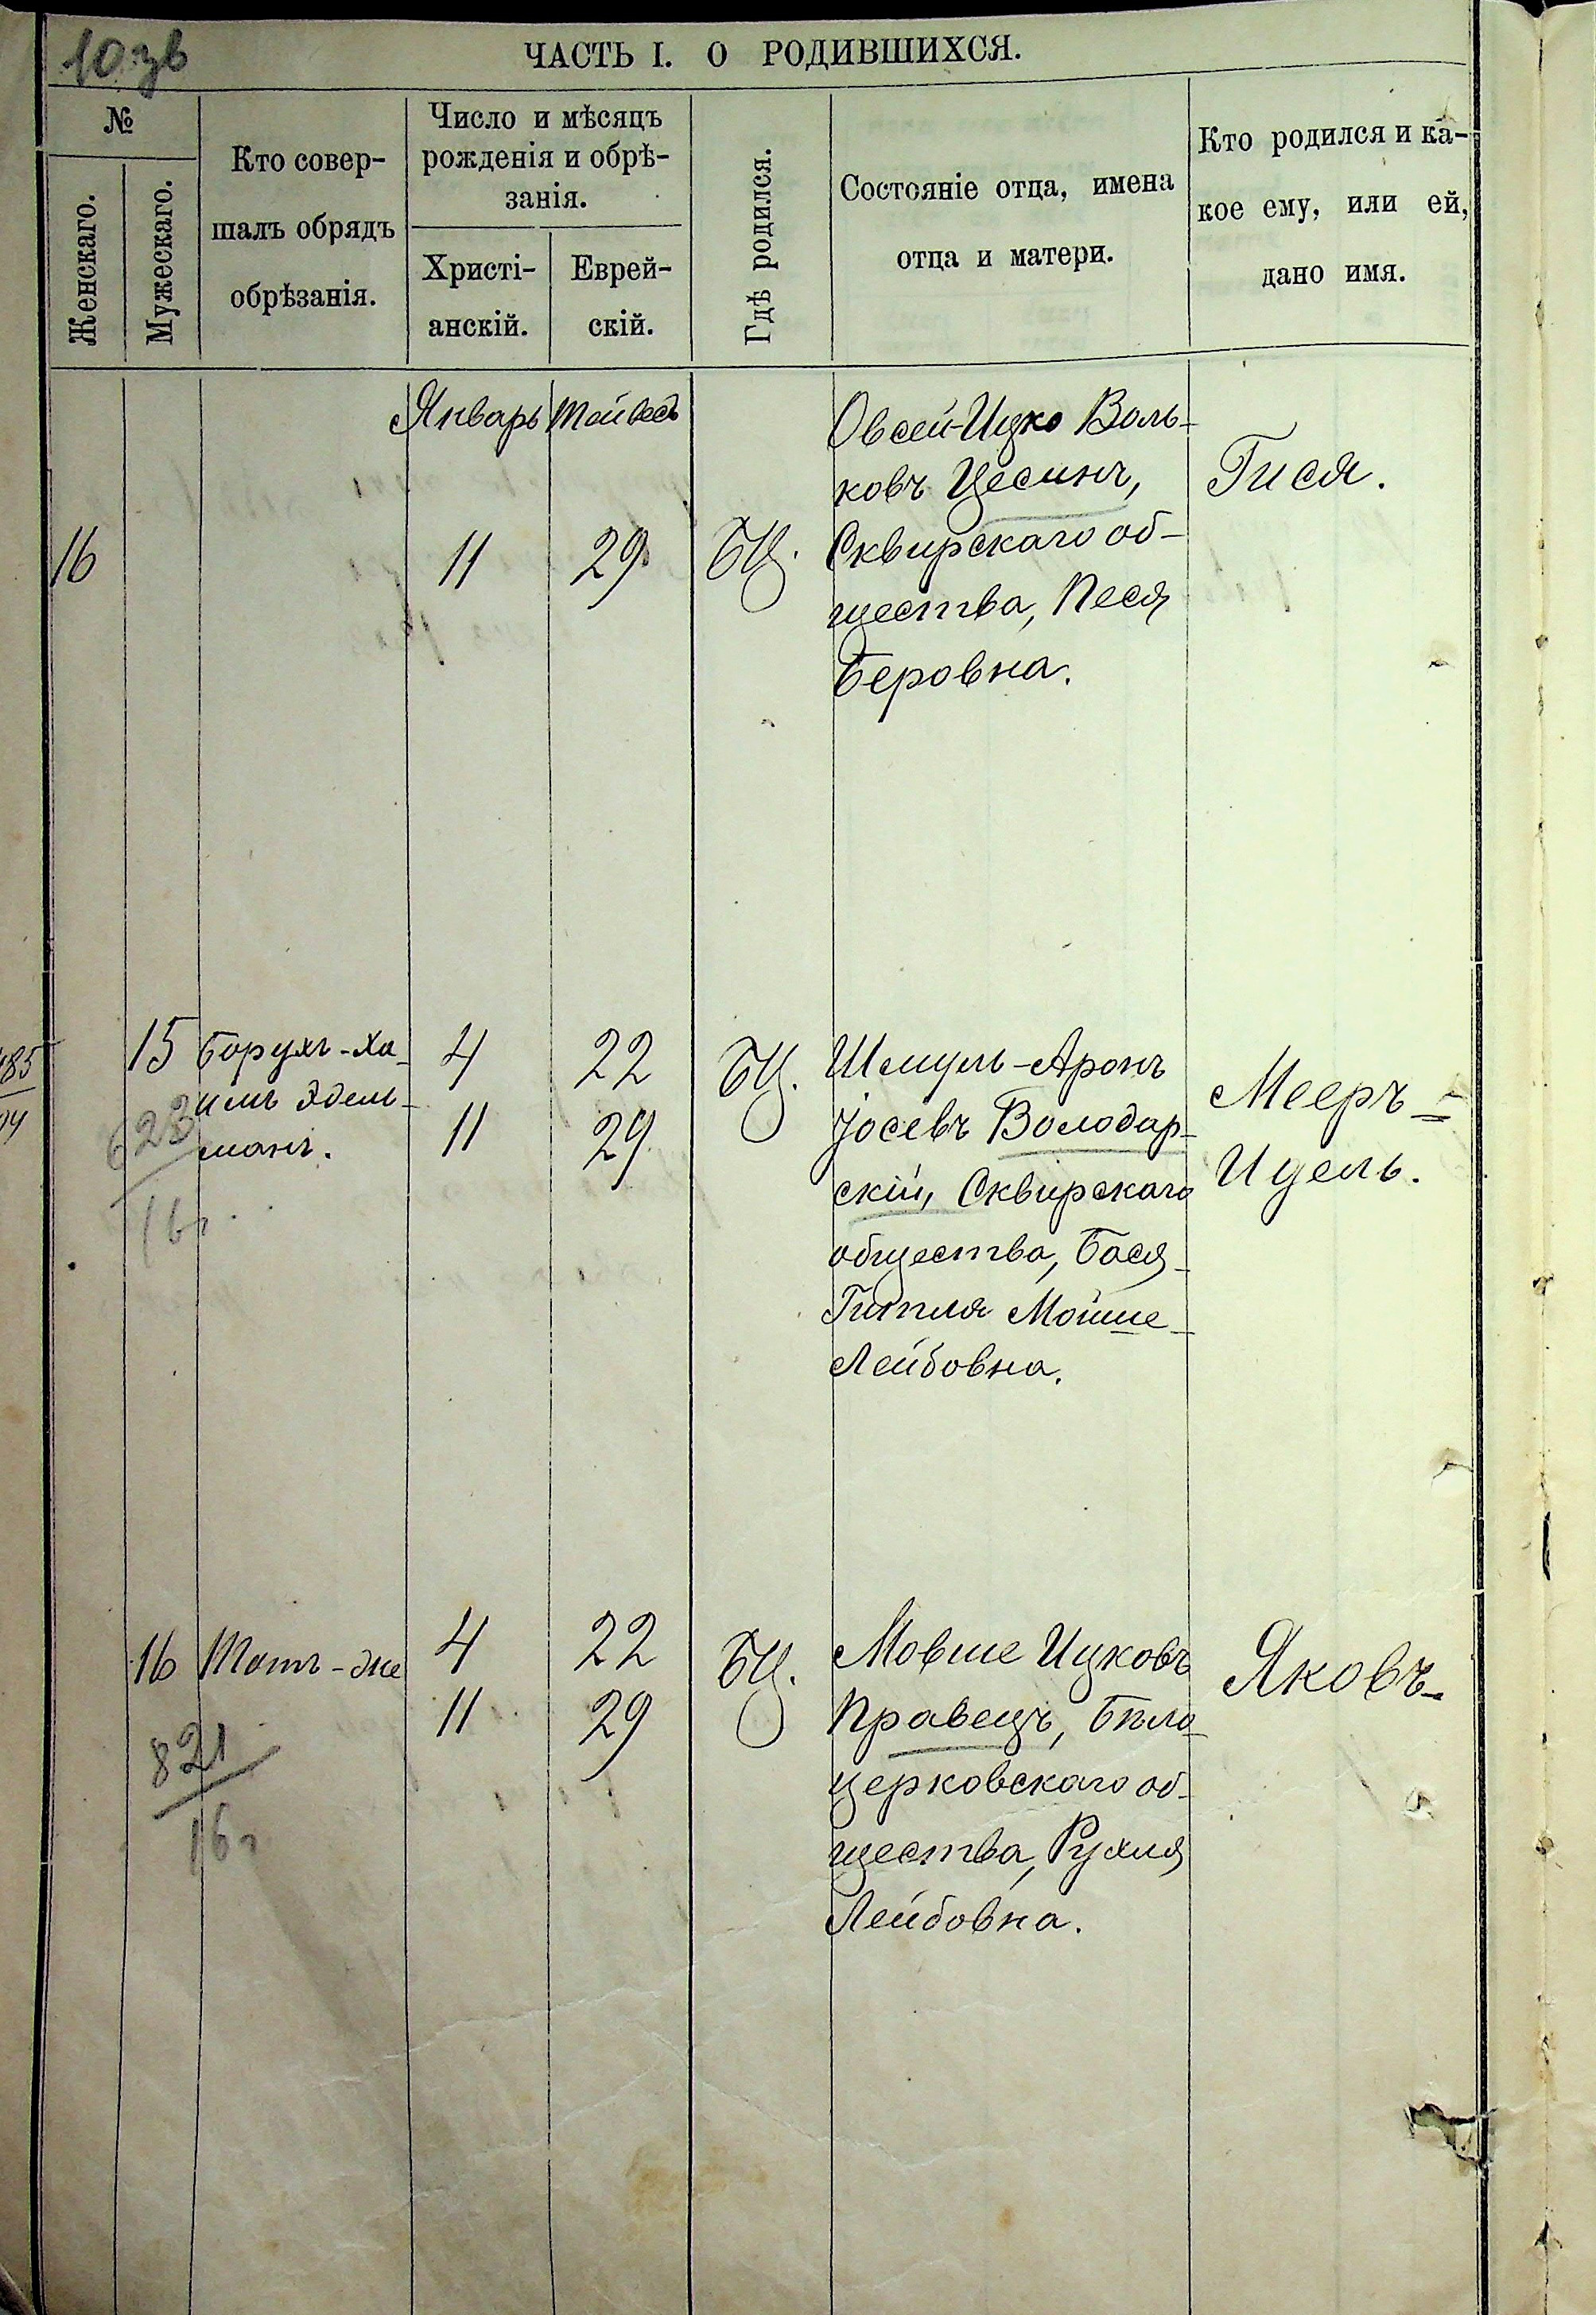 10 зв
ЧАСТЬ I. О РОДИВШИХСЯ.
№
Женскаго.
Мужескаго.
Кто совер-
шалъ обрядъ
обрѣзанія.
Число и мѣсяцъ
рожденія и обрѣ-
занія.
Христі-
анскій.
Еврей-
скій.
Гдѣ родился.
Состояніе отца, имена
отца и матери.
Кто родился и ка-
кое ему, или ей,
дано имя.
Январь Тейвесъ
16 11 29 БЦ.
Овсей-Ицко Воль-
ковъ Цесинъ,
Сквирскаго об-
щества, Песя
Беровна.
Гися.
15 Борухъ-Ха-
имъ Эдель-
манъ.
623
16г.
4 22 БЦ.
11 29
Шмуль-Аронъ
Іосевъ Володар-
скій, Сквирскаго
общества, Бася-
Гитля Мойше-
Лейбовна.
Мееръ=
Идель.
16 Тотъ-же
821
16г
4 22 БЦ.
11 29
Мовше Ицковъ
Правецъ, Бѣло-
церковскаго об-
щества, Рухля
Лейбовна.
Яковъ.
485